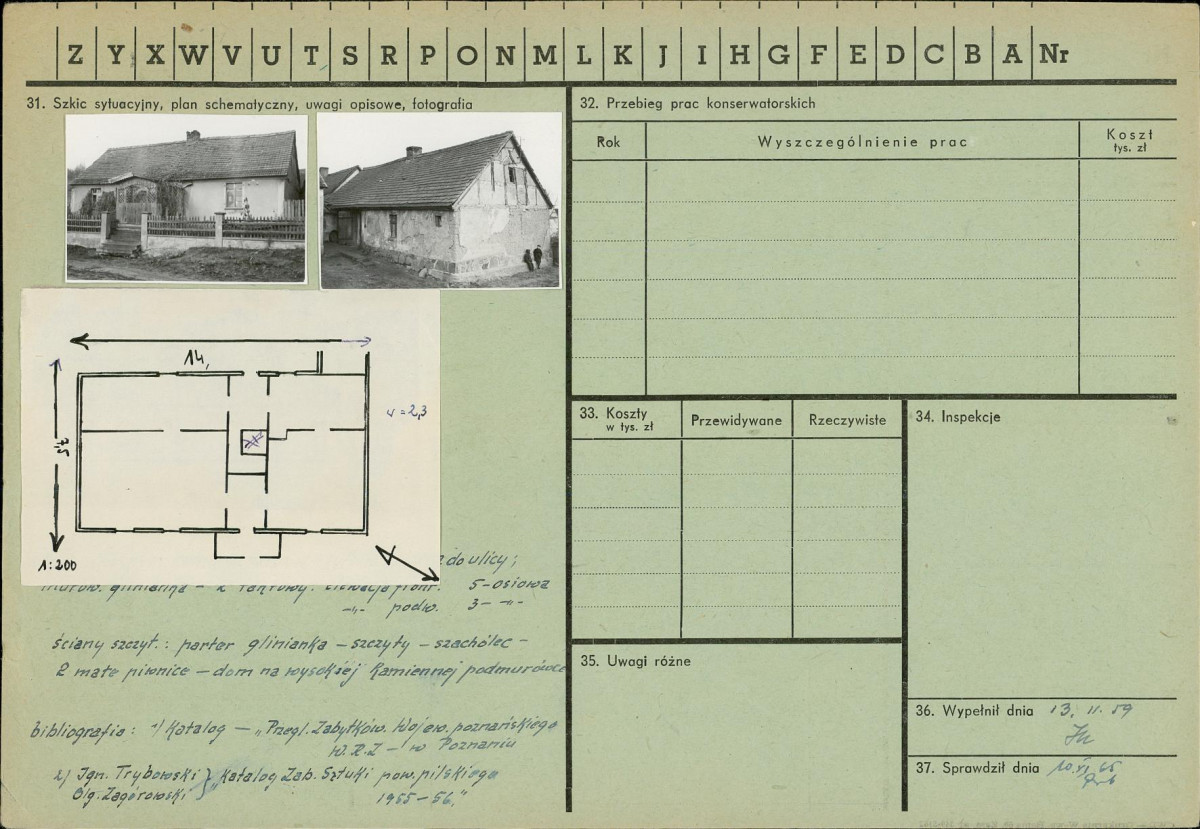 Z Y X W V U T S R P O N M L K J I H G F E D C B A Nr
31. Szkic sytuacyjny, plan schematyczny, uwagi opisowe, fotografia
14,
7,5
v = 2,3
1:200
do ulicy;
murow. glinianka – 5-osiowa
-„- podw. 3- -„-
ściany szczyt.: parter glinianka – szczyty – szachólec –
2 małe piwnice – dom na wysokiej kamiennej podmurówce
bibliografia: 1/ Katalog – „Przegl. Zabytków. Wojew. poznańskiego
W.R.Z – w Poznaniu
2/ Ign. Trybowski } „Katalog Zab. Sztuki pow. pilskiego
Olg. Zagórowski 1955–56."
32. Przebieg prac konserwatorskich
Rok Wyszczególnienie prac Koszt
tys. zł
33. Koszty Przewidywane Rzeczywiste
w tys. zł
34. Inspekcje
35. Uwagi różne
36. Wypełnił dnia 13. 11. 59
37. Sprawdził dnia 10. XI 65